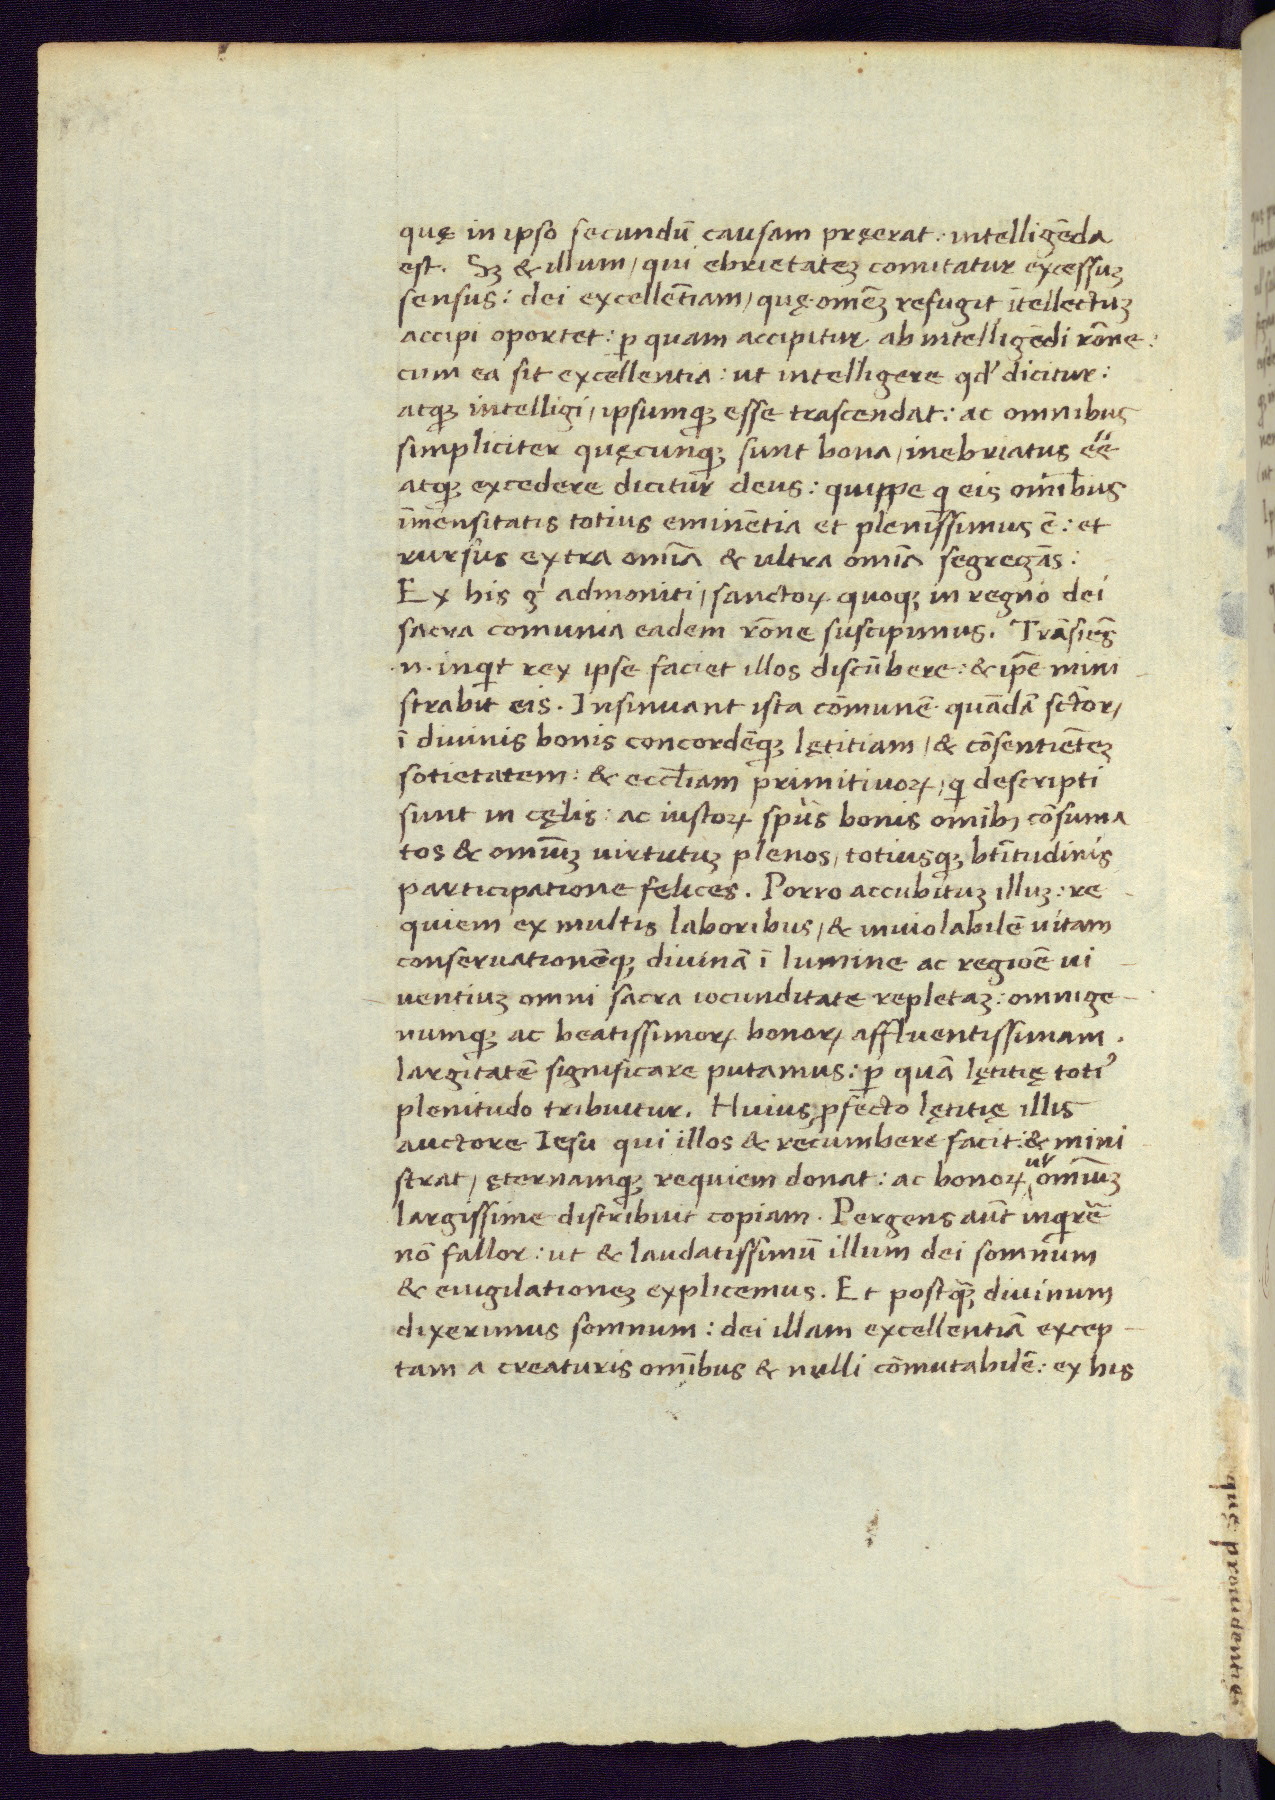 quę in ipso secundū causam pręerat: intelligēda
est. Sꝫ & illum, qui ebrietateꝫ comitatur excessuꝫ
sensus: dei excellētiam, quę omēꝫ refugit ītellectuꝫ
accipi oportet: ꝑ quam accipitur ab intelligēdi rōne:
cum ea sit excellentia: ut intelligere qd' dicitur:
atqꝫ intelligi, ipsumqꝫ esse trascendat: ac omnibus
simpliciter quęcunqꝫ sunt bona, inebriatus ēē
atqꝫ excedere dicitur deus: quippe q eis omībus
īmēnsitatis totius eminētia et plenissimus ē: et
rursus extra omīa & ultra omīa segregās:
Ex his gͥ admoniti, sanctoꝝ quoqꝫ in regno dei
sacra comunia eadem rōne suscipimus. Trāsiēs
.n. inqͥt rex ipse faciet illos discūbere: & ip̄e mini
strabit eis. Insinuant ista cōmunē quādā sctōꝝ
ī divinis bonis concordēqꝫ lętitiam, & cōsentiētēꝫ
sotietatem: & eccl̄iam primitivoꝝ, q descripti
sunt in cęlis: ac iustoꝝ spūs bonis omībꝫ cōsuma
tos & omīuꝫ uirtutuꝫ plenos, totiusqꝫ bt̄itudinis
participatione felices. Porro accubituꝫ illuꝫ: re
quiem ex multis laboribus, & inuiolabilē uitam
conseruationēqꝫ divinā ī lumine ac regiōe ui
uentiuꝫ omni sacra iocunditate repletaꝫ: omnige
numqꝫ ac beatissimoꝝ bonoꝝ affluentissimam.
largitatē significare putamus: ꝑ quā lętitię totiꝰ
plenitudo tribuitur. Huius ꝓfecto lętitię illis
auctore Iesu qui illos & recumbere facit: & mini
strat, ęternamqꝫ requiem donat: ac bonoꝝ ut omīuꝫ
largissime distribuit copiam. Pergens aūt inqͥrē
nō fallor: ut & laudatissimū illum dei somnum
& euigilationeꝫ explicemus. Et postqꝫ divinum
dixerimus somnum: dei illam excellentiā excep
tam a creaturis omībus & nulli cōmutabilē: ex his
quę prouidentię